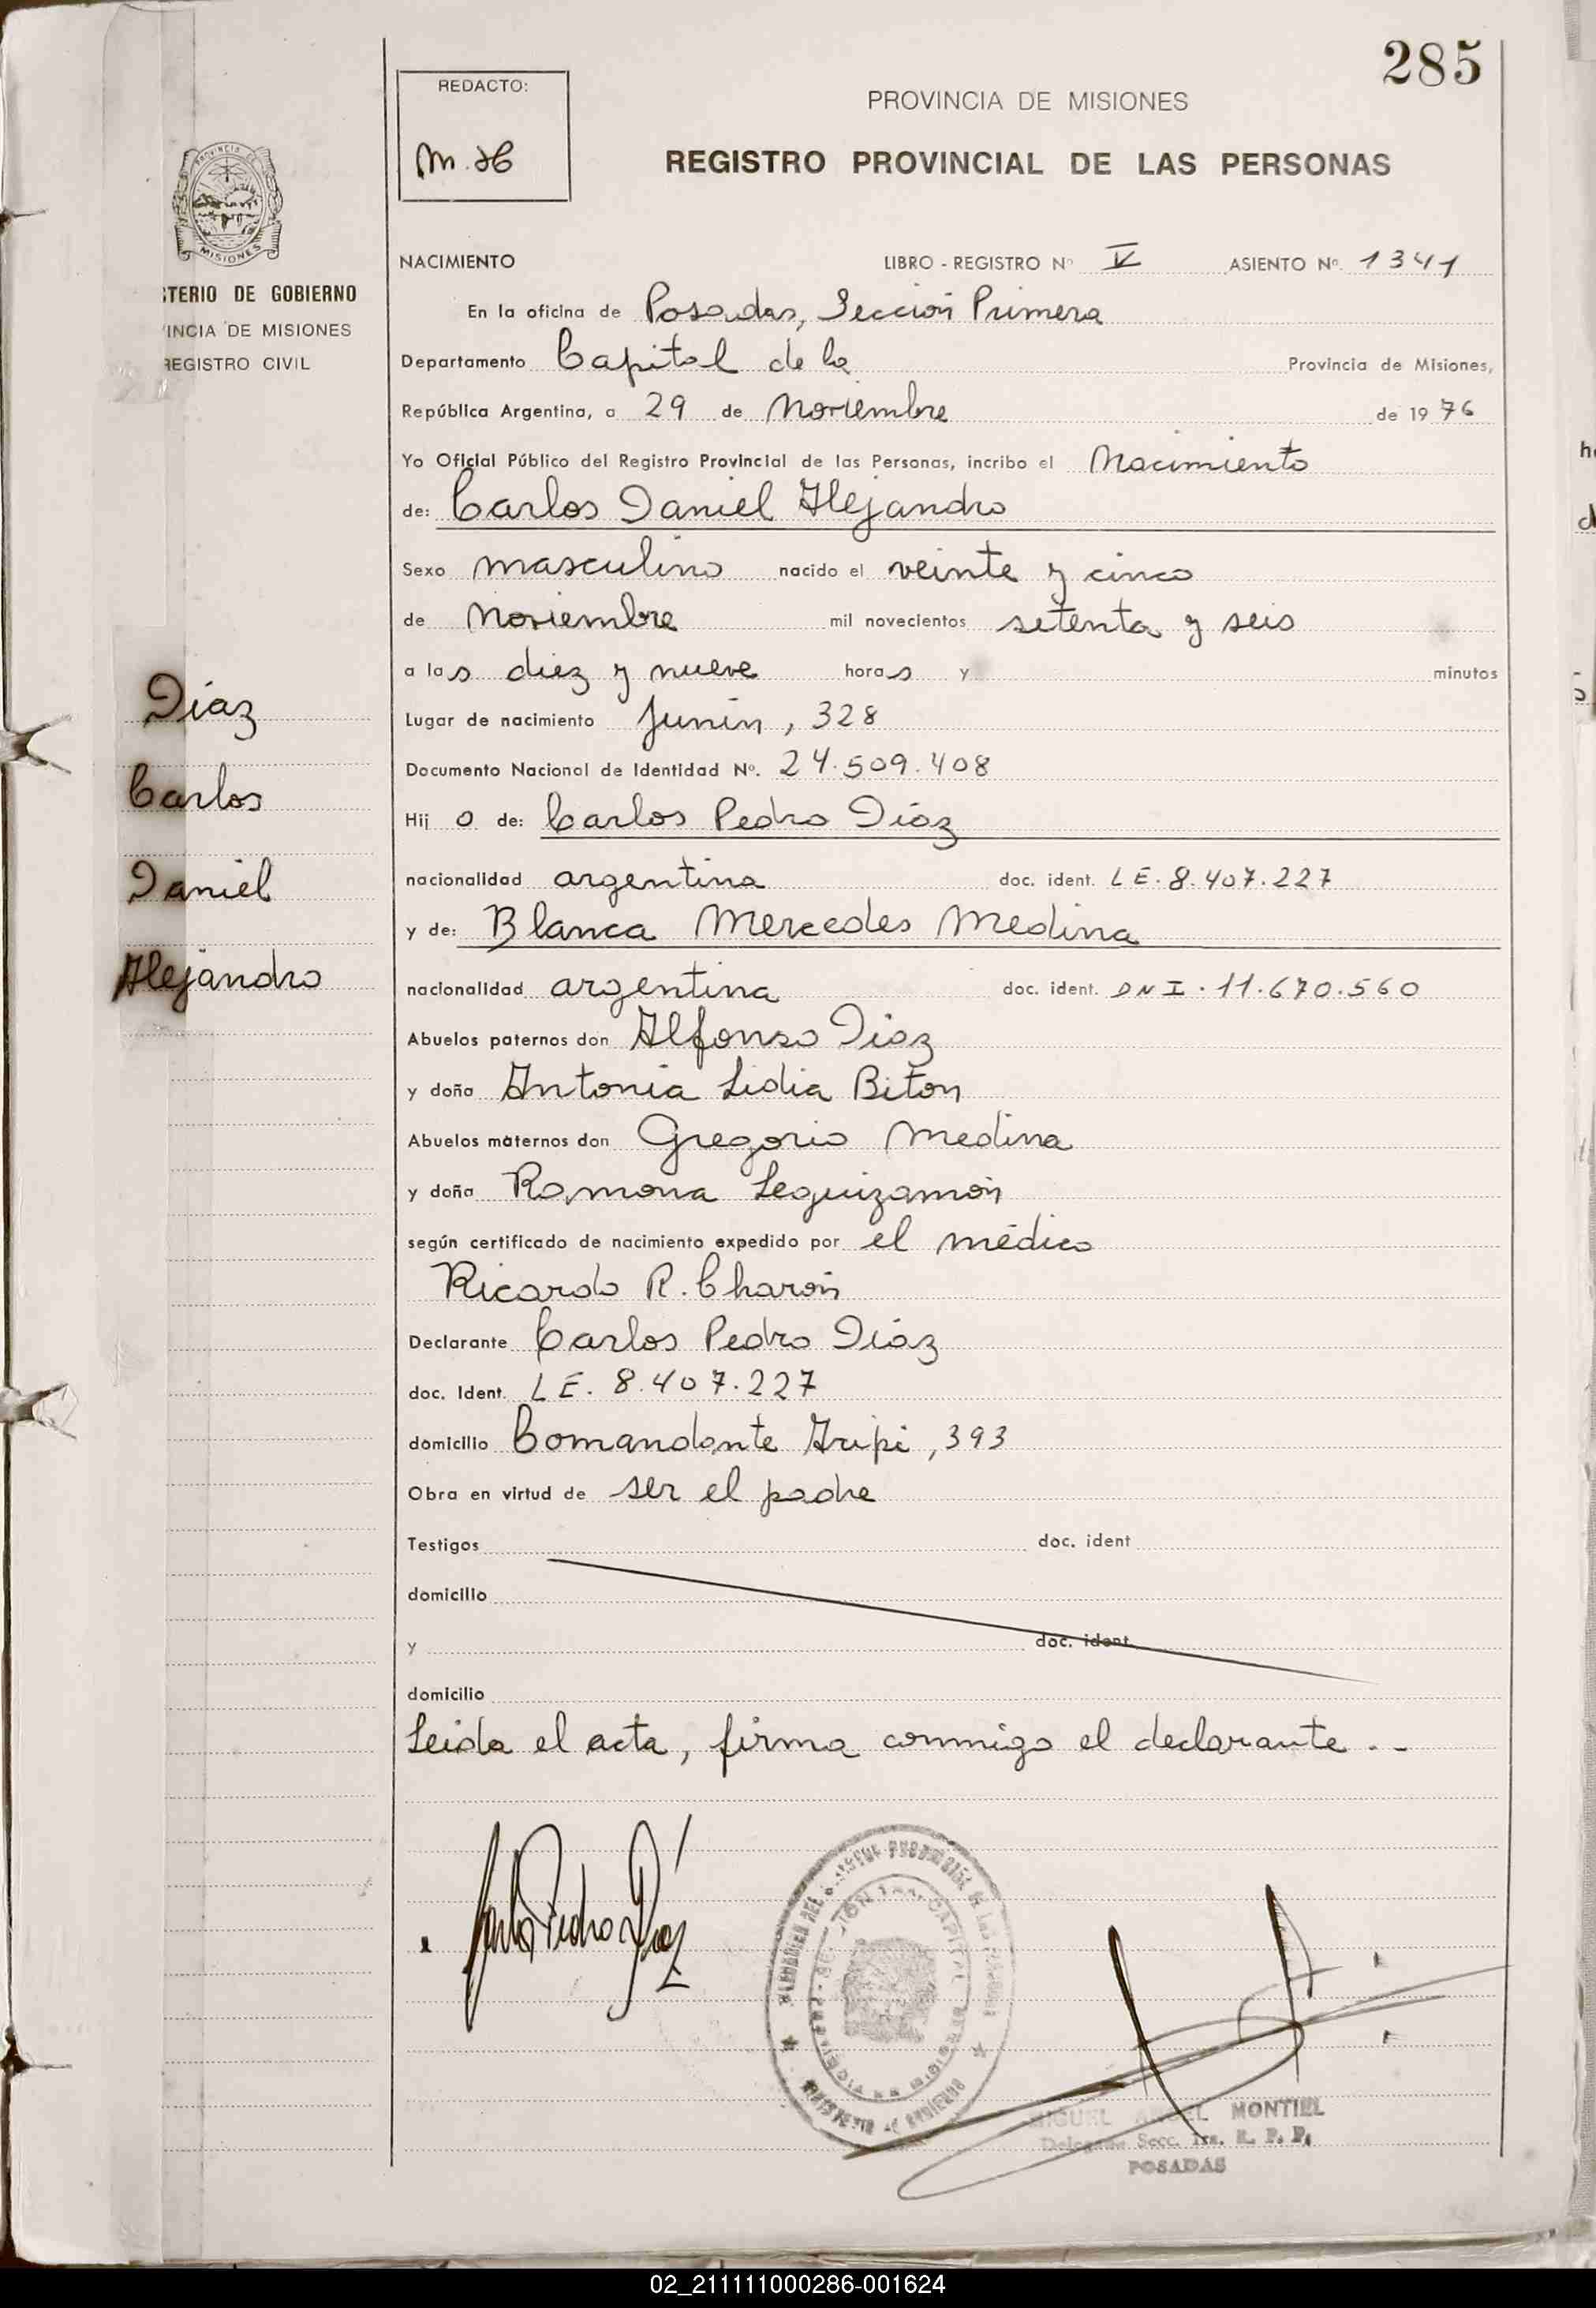 285
REDACTO:
PROVINCIA DE MISIONES
REGISTRO PROVINCIAL DE LAS PERSONAS
PROVINCIA DE
MISIONES
TERIO DE GOBIERNO
INCIA DE MISIONES
REGISTRO CIVIL
NACIMIENTO LIBRO - REGISTRO Nº V ASIENTO Nº. 1341
En la oficina de Posadas, Sección Primera
Departamento Capital de la Provincia de Misiones,
República Argentina, a 29 de Noviembre de 1976
Yo Oficial Público del Registro Provincial de las Personas, incribo el Nacimiento
de: Carlos Daniel Alejandro
Sexo masculino nacido el veinte y cinco
de Noviembre mil novecientos setenta y seis
a las diez y nueve horas y minutos
Lugar de nacimiento Junín, 328
Documento Nacional de Identidad Nº. 24.509.408
Hijo de: Carlos Pedro Díaz
nacionalidad argentina doc. ident. LE. 8.407.227
y de: Blanca Mercedes Medina
nacionalidad argentina doc. ident. DNI. 11.670.560
Abuelos paternos don Alfonso Díaz
y doña Antonia Lidia Biton
Abuelos maternos don Gregorio Medina
y doña Ramona Leguizamón
según certificado de nacimiento expedido por el médico
Ricardo R. Charón
Declarante Carlos Pedro Díaz
doc. Ident. LE. 8.407.227
domicilio Comandante 393
Obra en virtud de ser el padre
Testigos doc. ident
domicilio
y doc. ident
domicilio
Leida el acta, firma conmigo el declarante . -
Díaz
Carlos
Daniel
Alejandro
Carlos Pedro Díaz
MIGUEL ANGEL MONTIEL
Delegado Secc. 1ra. R. P. P.
POSADAS
02_211111000286-001624